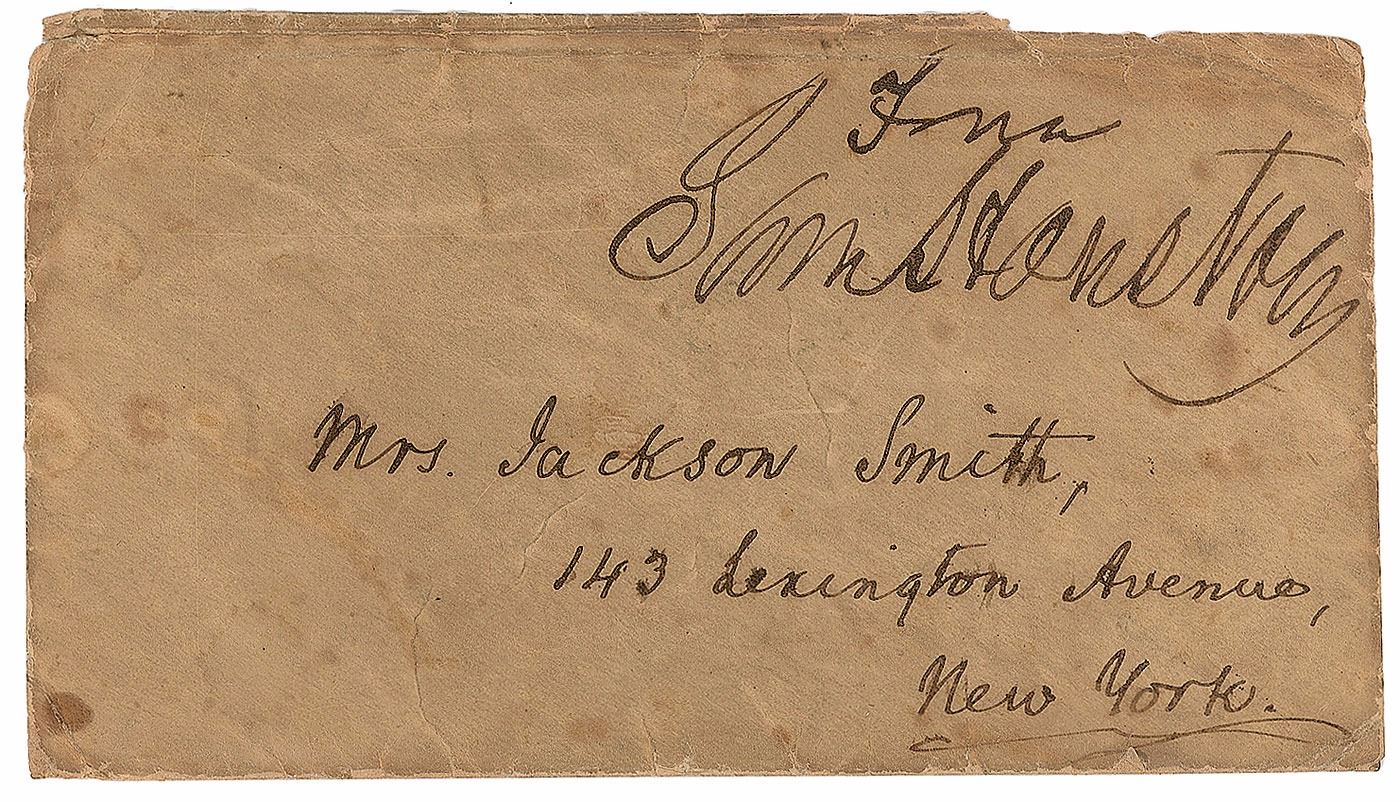 Free
Sam Houston
Mrs. Jackson Smith,
143 Lexington Avenue,
New York.